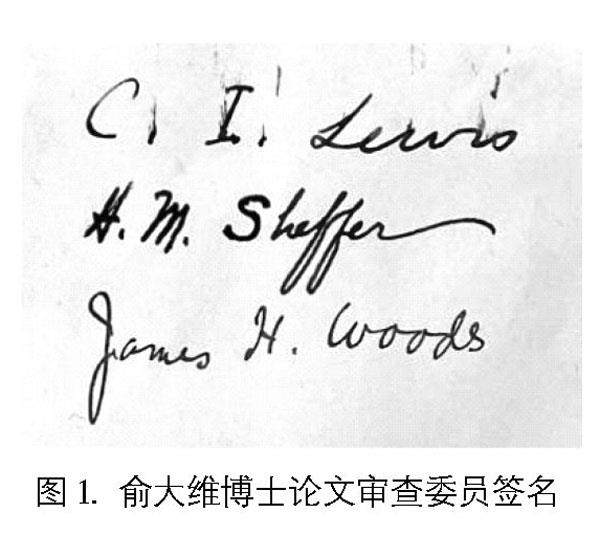 C. I. Lewis
H. M. Sheffer
James H. Woods
图 1. 俞大维博士论文审查委员签名